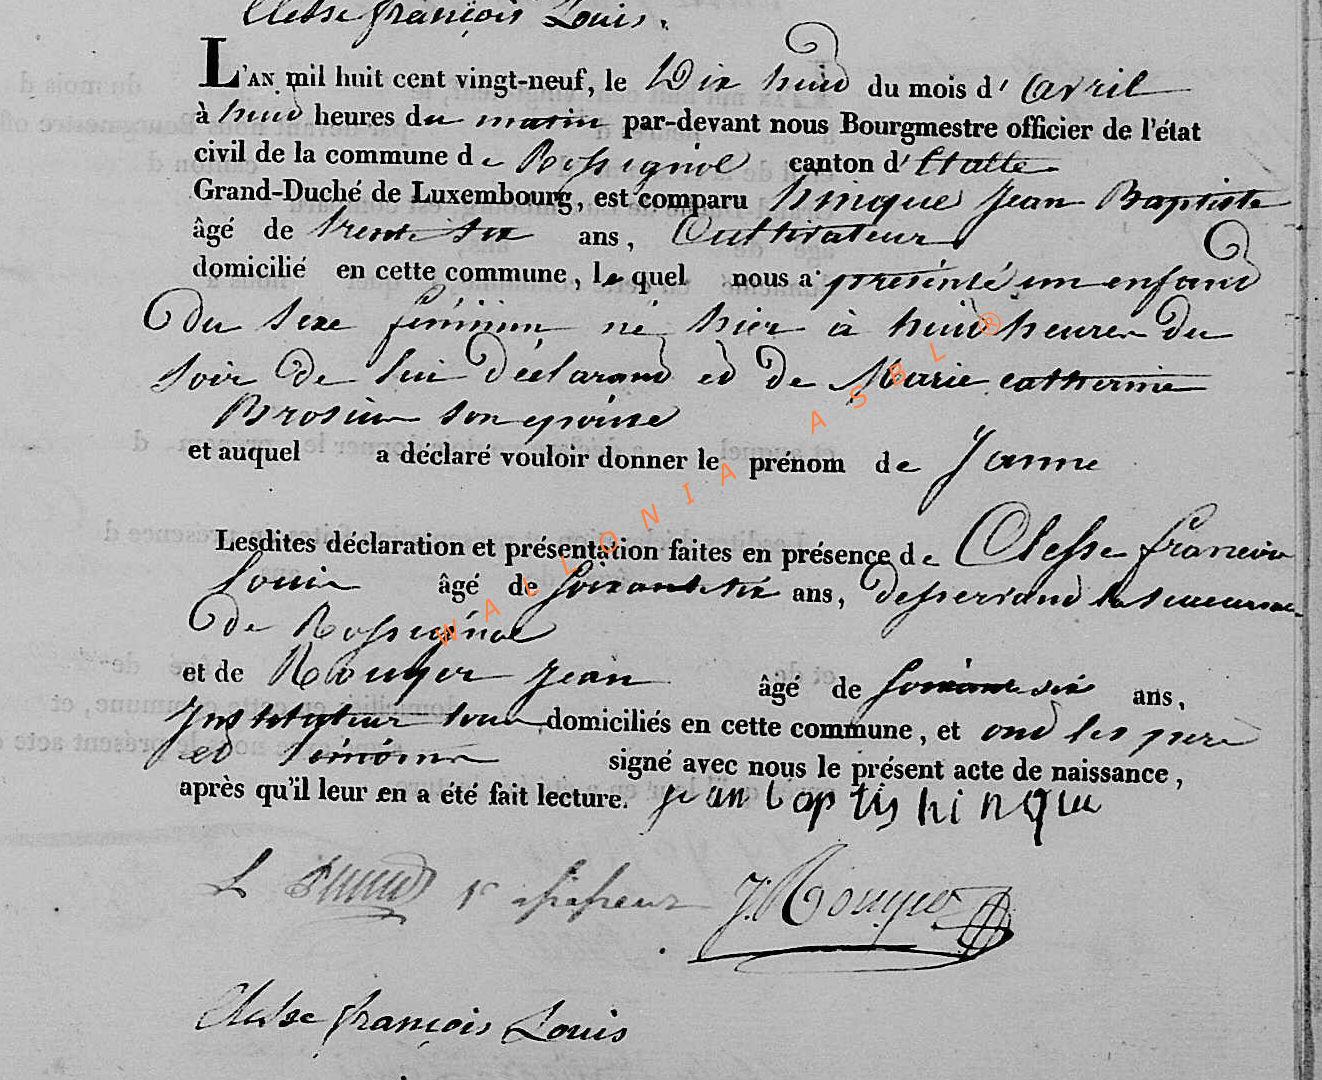 Clesse françois Louis.
L'AN mil huit cent vingt-neuf, le Dix huit du mois d' avril
à huit heures du matin par-devant nous Bourgmestre officier de l'état
civil de la commune de Rossignol canton d' Etalle
Grand-Duché de Luxembourg, est comparu hinque jean Baptiste
âgé de trente six ans, Cultivateur
domicilié en cette commune, le quel nous a présenté un enfant
Du sexe féminin né hier à huit heures Du
soir De lui Déclarant et De Marie catherine
Brosius son epouse
et auquel a déclaré vouloir donner le prénom de Janne
Lesdites déclaration et présentation faites en présence de Clesse francois
Louis âgé de soixante six ans, Desservant la succursale
De Rossignol
et de Rouyer jean âgé de soixante six ans,
Instituteur tous domiciliés en cette commune, et ont les pere
et témoins signé avec nous le présent acte de naissance,
après qu'il leur en a été fait lecture. jean baptis hinque
L 1r assesseur J. Rouyer
Clesse françois Louis
WALLONIA ASBL ®